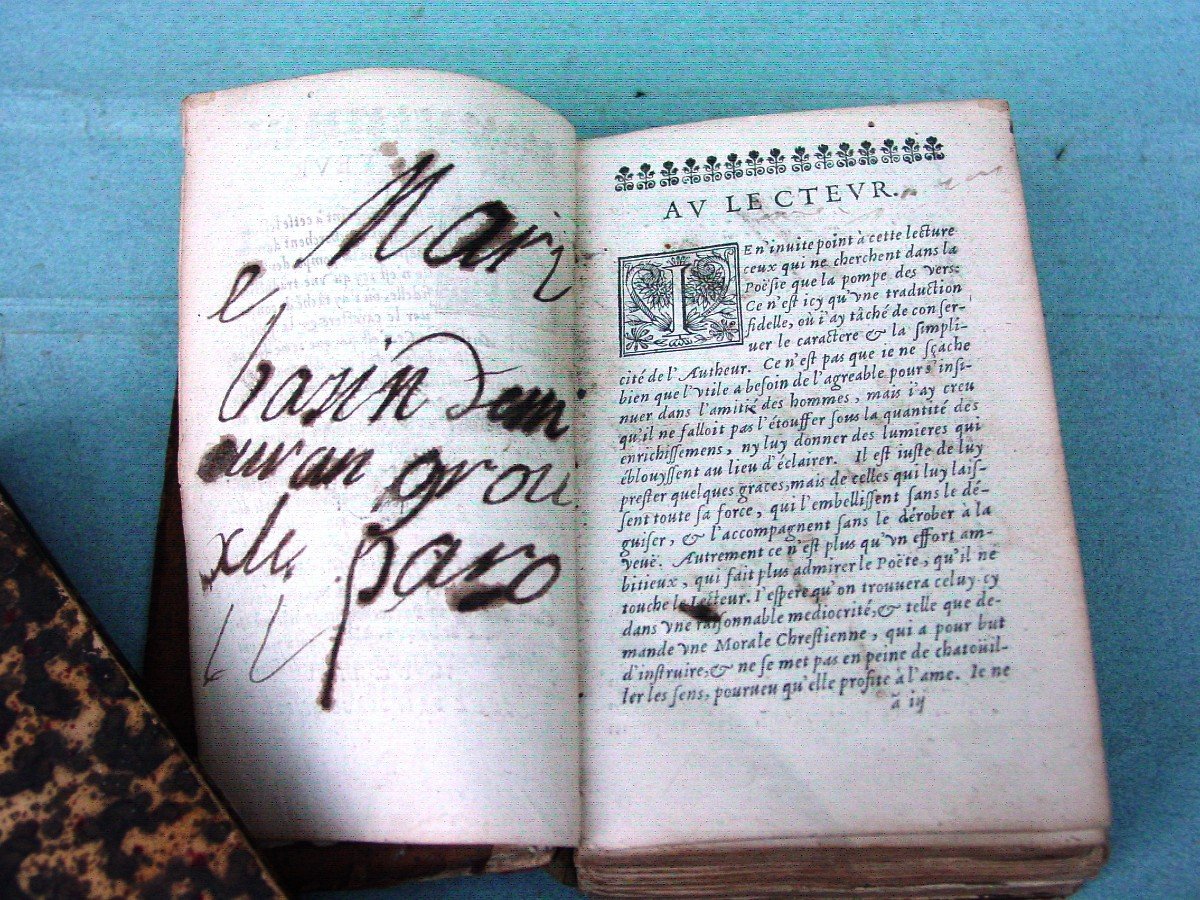 Mari
e
basin dem
euran grou
x le
paro
AV LECTEVR.
IE n'inuite point à cette lecture
ceux qui ne cherchent dans la
Poësie que la pompe des vers:
Ce n'est icy qu'vne traduction
fidelle, où i'ay tâché de conser-
uer le caractere & la simpli-
cité de l'Autheur. Ce n'est pas que ie ne sçache
bien que l'vtile a besoin de l'agreable pour s'insi-
nuer dans l'amitié des hommes, mais i'ay creu
qu'il ne falloit pas l'étouffer sous la quantité des
enrichissemens, ny luy donner des lumieres qui
éblouyssent au lieu d'éclairer. Il est iuste de luy
prester quelques graces, mais de celles qui luy lais-
sent toute sa force, qui l'embellissent sans le dé-
guiser, & l'accompagnent sans le dérober à la
veuë. Autrement ce n'est plus qu'vn effort am-
bitieux, qui fait plus admirer le Poëte, qu'il ne
touche le Lecteur. I'espere qu'on trouuera celuy-cy
dans vne raisonnable mediocrité, & telle que de-
mande vne Morale Chrestienne, qui a pour but
d'instruire, & ne se met pas en peine de chatoüil-
ler les sens, pourueu qu'elle profite à l'ame. Ie ne
ã iij